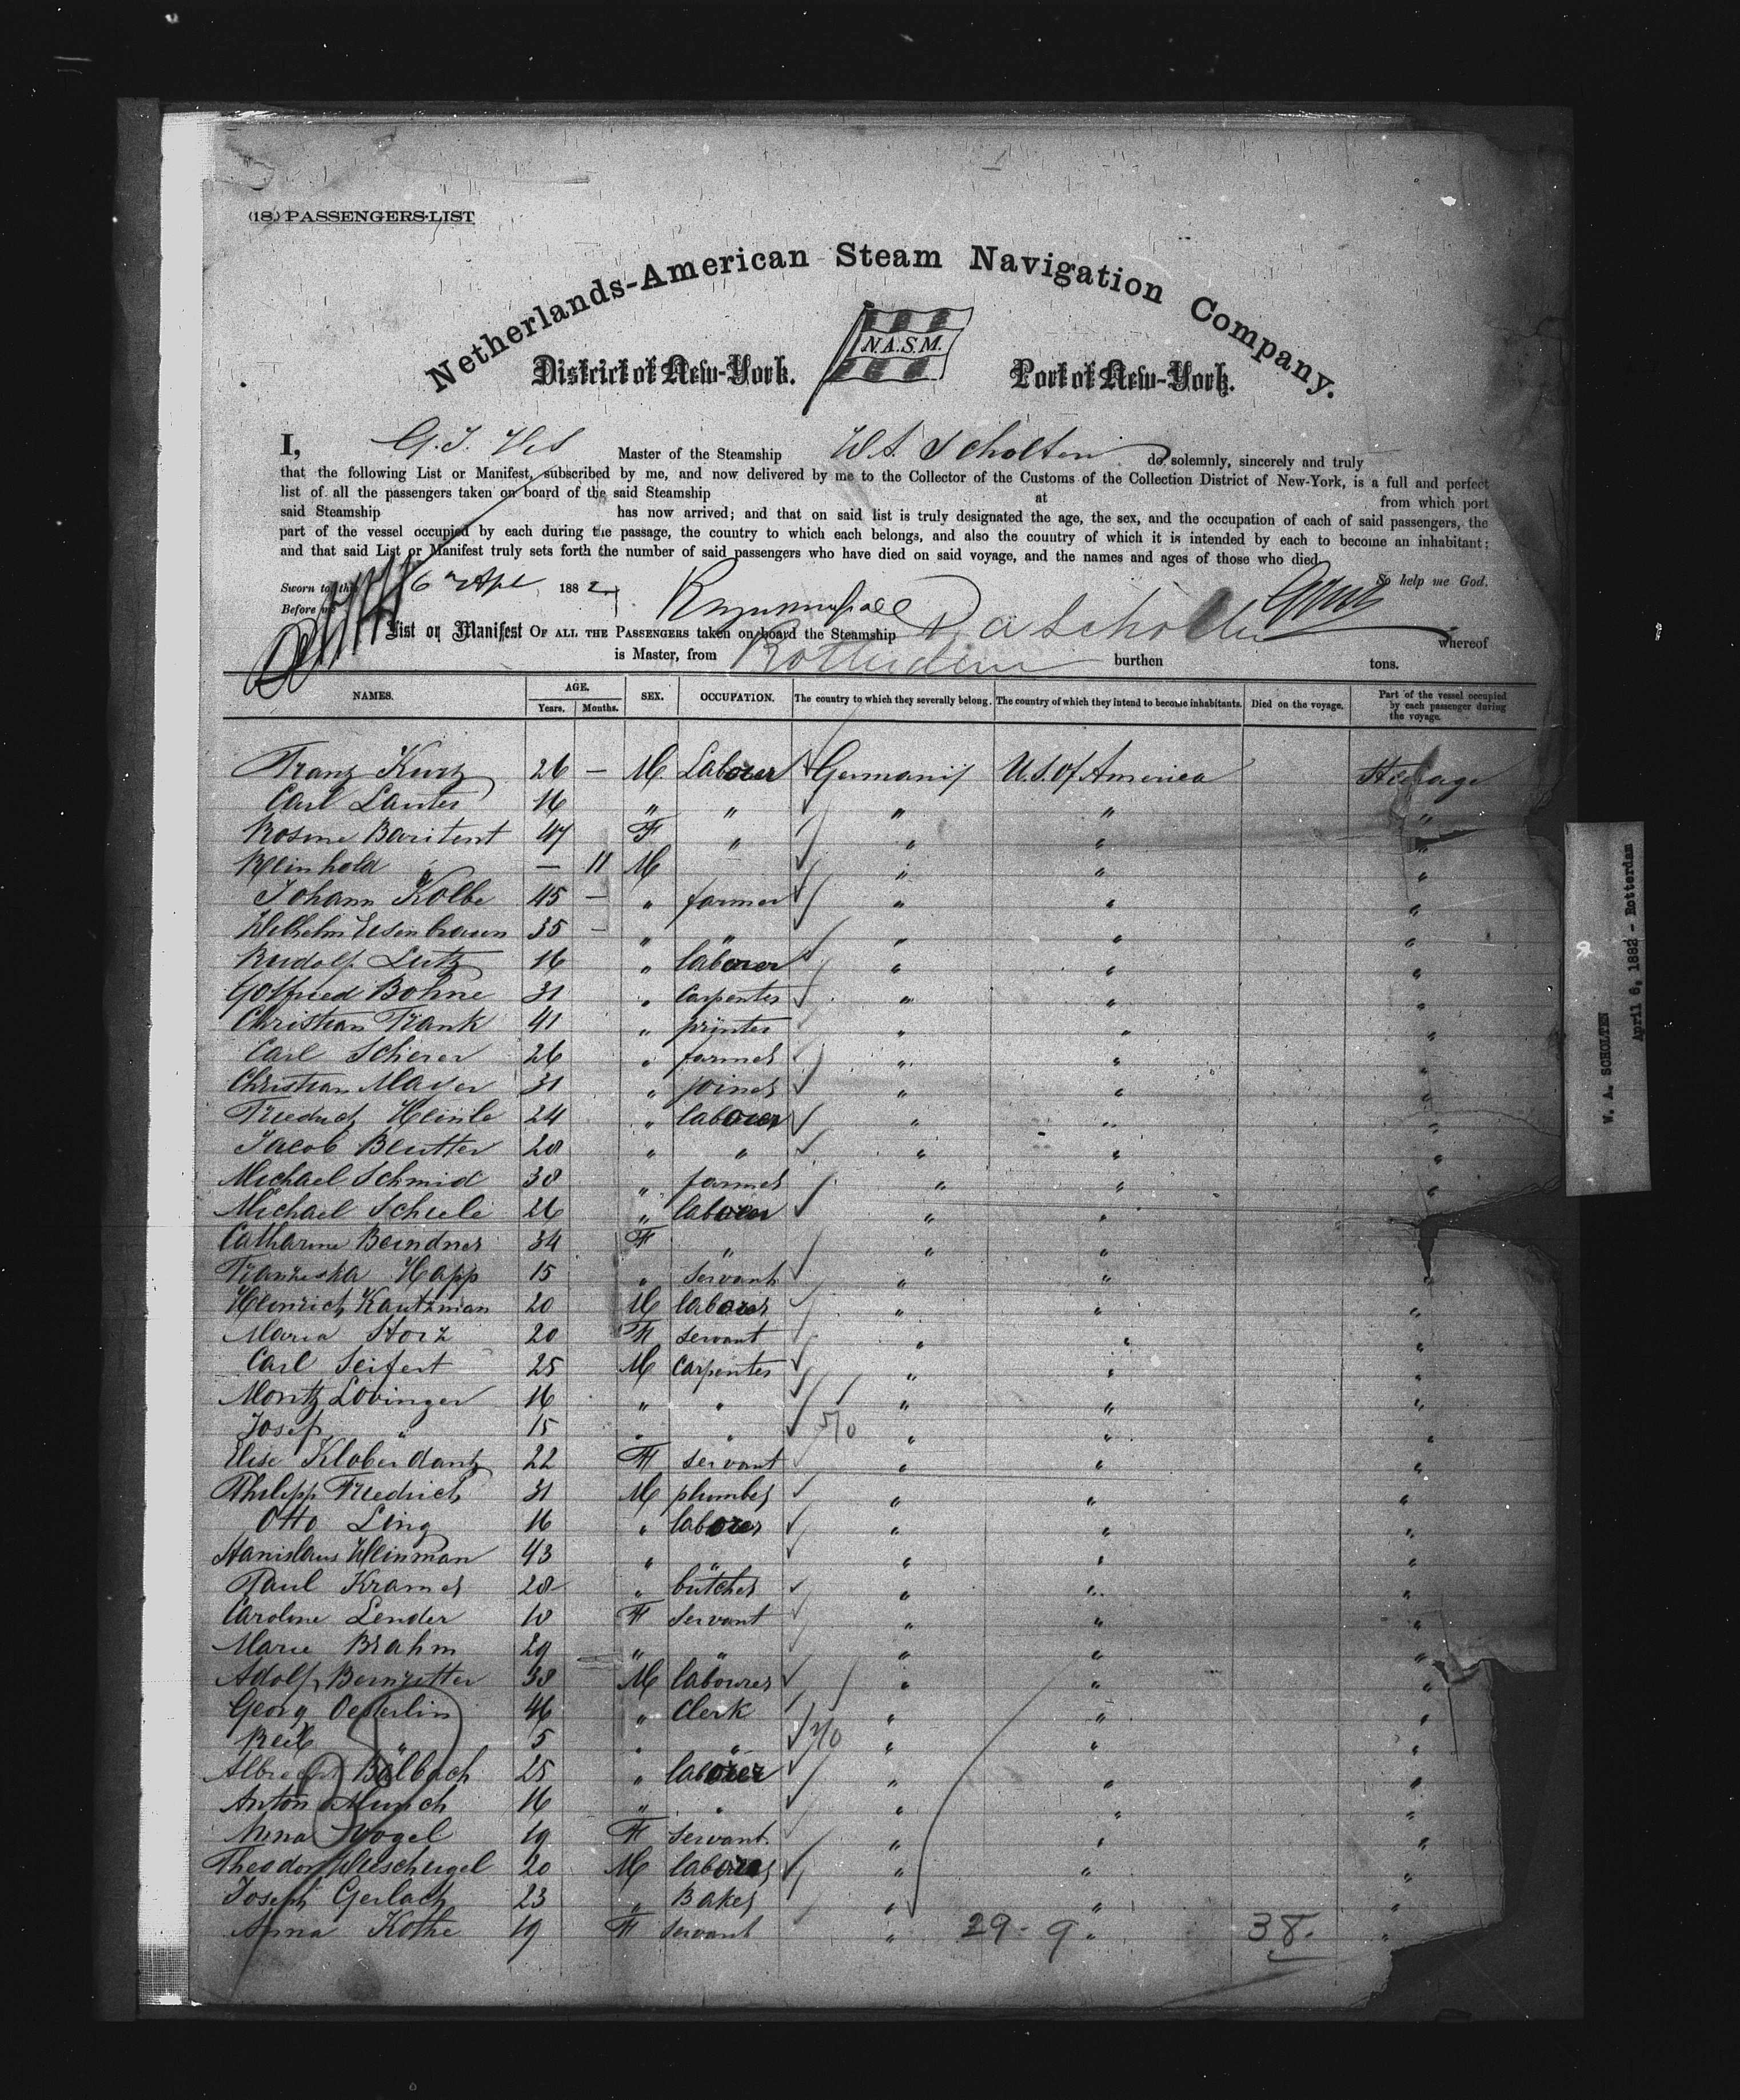 (18) PASSENGERS-LIST
Netherlands-American Steam Navigation Company.
N.A.S.M.
District of New-York. Port of New-York.
I, G. J. Vis Master of the Steamship W. A. Scholten do, solemnly, sincerely and truly
that the following List or Manifest, subscribed by me, and now delivered by me to the Collector of the Customs of the Collection District of New-York, is a full and perfect
list of all the passengers taken on board of the said Steamship at from which port
said Steamship has now arrived; and that on said list is truly designated the age, the sex, and the occupation of each of said passengers, the
part of the vessel occupied by each during the passage, the country to which each belongs, and also the country of which it is intended by each to become an inhabitant;
and that said List or Manifest truly sets forth the number of said passengers who have died on said voyage, and the names and ages of those who died.
So help me God.
Sworn to, this 6 Apl 1882
Before me
List or Manifest OF ALL THE PASSENGERS taken on board the Steamship W a Scholten whereof
is Master, from Rotterdam burthen tons.
NAMES. AGE. Years. Months. SEX. OCCUPATION. The country to which they severally belong. The country of which they intend to become inhabitants. Died on the voyage. Part of the vessel occupied by each passenger during the voyage.
Franz Kurz 26 — M Laborer Germany U.S. of America Steerage
Carl Lauter 16 " " " " "
Rosine Baritent 47 F " " " "
Reinhold — 11 M " " "
Johann Kolbe 45 — " farmer " " "
Wilhelm Eisenbraun 35 — " " " " "
Rudolf Lutz 16 " laborer " " "
Gotfried Bohne 31 " carpenter " " "
Christian Frank 41 " printer " " "
Carl Scherer 26 " farmer " " "
Christian Mayer 31 " joiner " " "
Friedrich Heinle 24 " laborer " " "
Jacob Beutter 28 " " " " "
Michael Schmid 38 " farmer " " "
Michael Scheele 26 " laborer " " "
Catharine Beindner 34 F " " " "
Franziska Happ 15 " Servant " " "
Heinrich Kautzman 20 M laborer " " "
Maria Storz 20 F servant " " "
Carl Seifert 25 M Carpenter " " "
Moritz Lovinger 16 " " " " "
Josef " 15 " " " " "
Elise Kloberdantz 22 F servant " " "
Philipp Friedrich 31 M plumber " " "
Otto Ling 16 " laborer " " "
Stanislaus Weinman 43 " " " " "
Paul Kramer 28 " butcher " " "
Caroline Lender 18 F Servant " " "
Marie Brahm 29 " " " " "
Adolf Bernritter 38 M labourer " " "
Georg Oesterlin 46 " Clerk " " "
" 5 " " " " "
Albrecht Balbach 25 " laborer " " "
Anton Munch 16 " " " " "
Nina Vogel 19 F Servant " " "
Theodor 20 M laborer " " "
Joseph Gerlach 23 " Baker " " "
Anna Kothe 19 F servant " " "
29 - 9 38.
W. A. SCHOLTEN
April 6, 1882 - Rotterdam